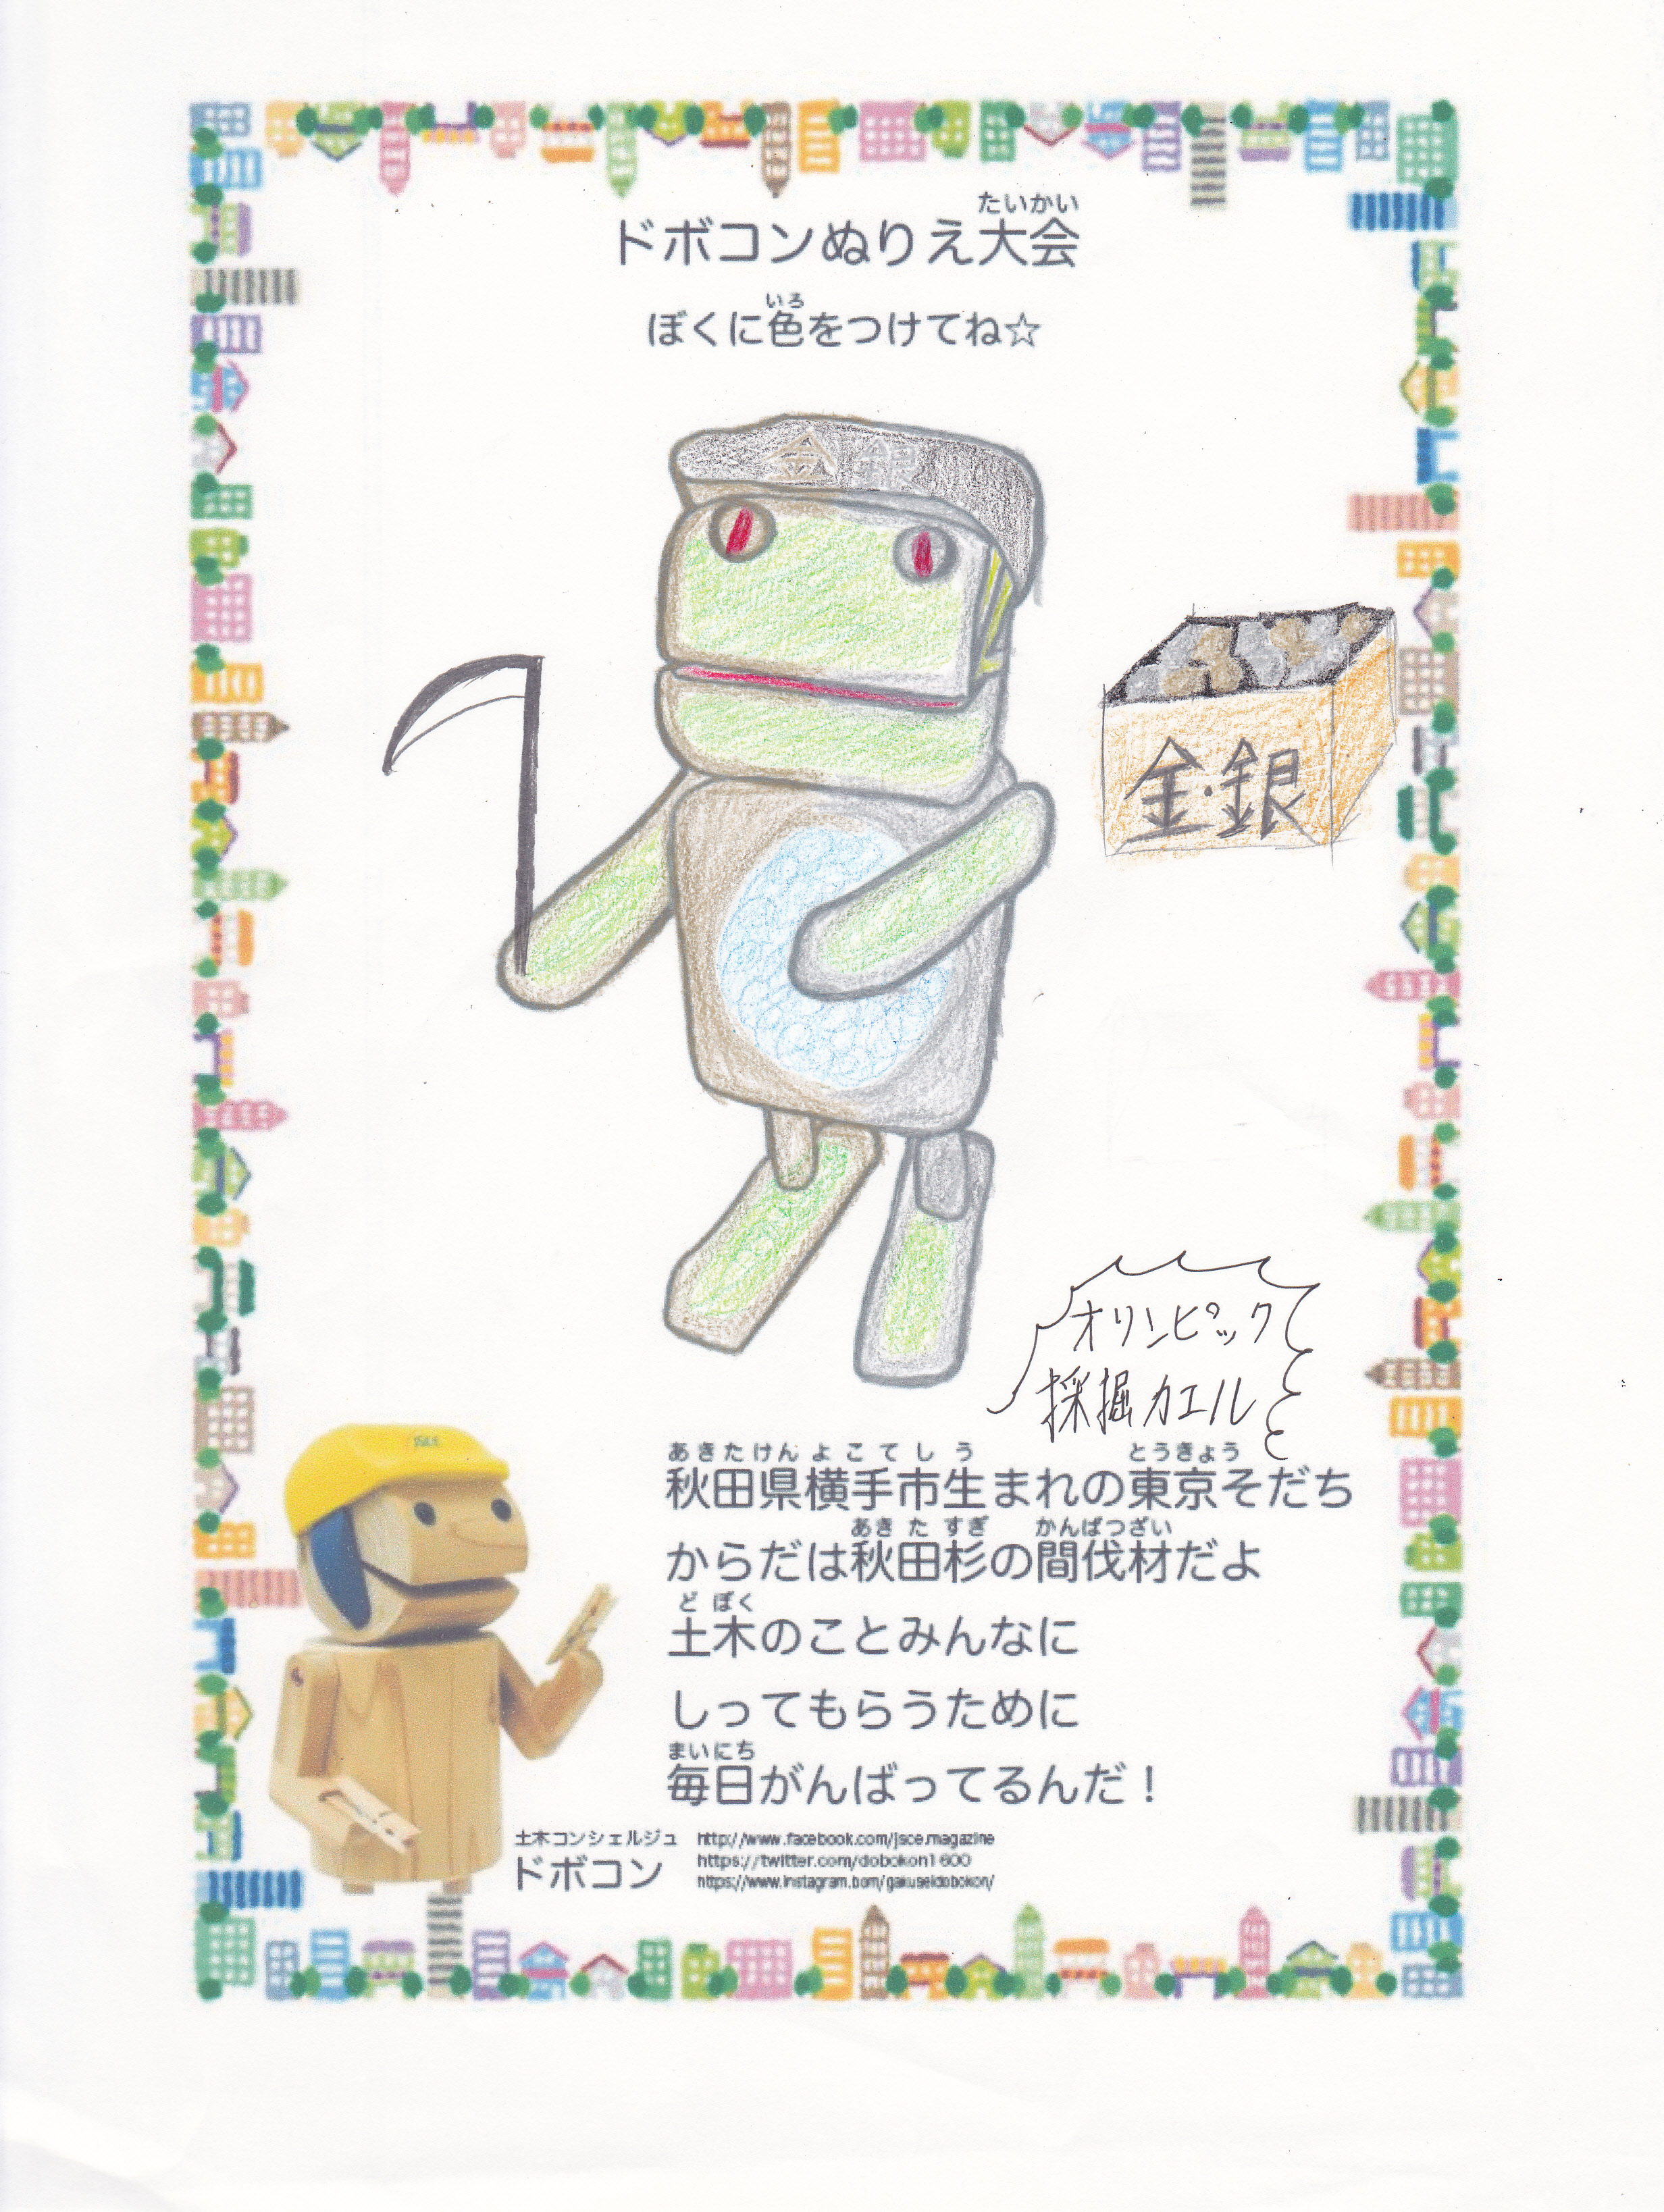 たいかい
ドボコンぬりえ大会
いろ
ぼくに色をつけてね☆
金 銀
金・銀
オリンピック
採掘カエル
JSCE
あきたけんよこてしう とうきょう
秋田県横手市生まれの東京そだち
あきたすぎ かんばつざい
からだは秋田杉の間伐材だよ
どぼく
土木のことみんなに
しってもらうために
まいにち
毎日がんばってるんだ！
土木コンシェルジュ
ドボコン
http://www.facebook.com/jsce.magazine
https://twitter.com/dobokon1600
https://www.instagram.bom/gakuseidobokon/